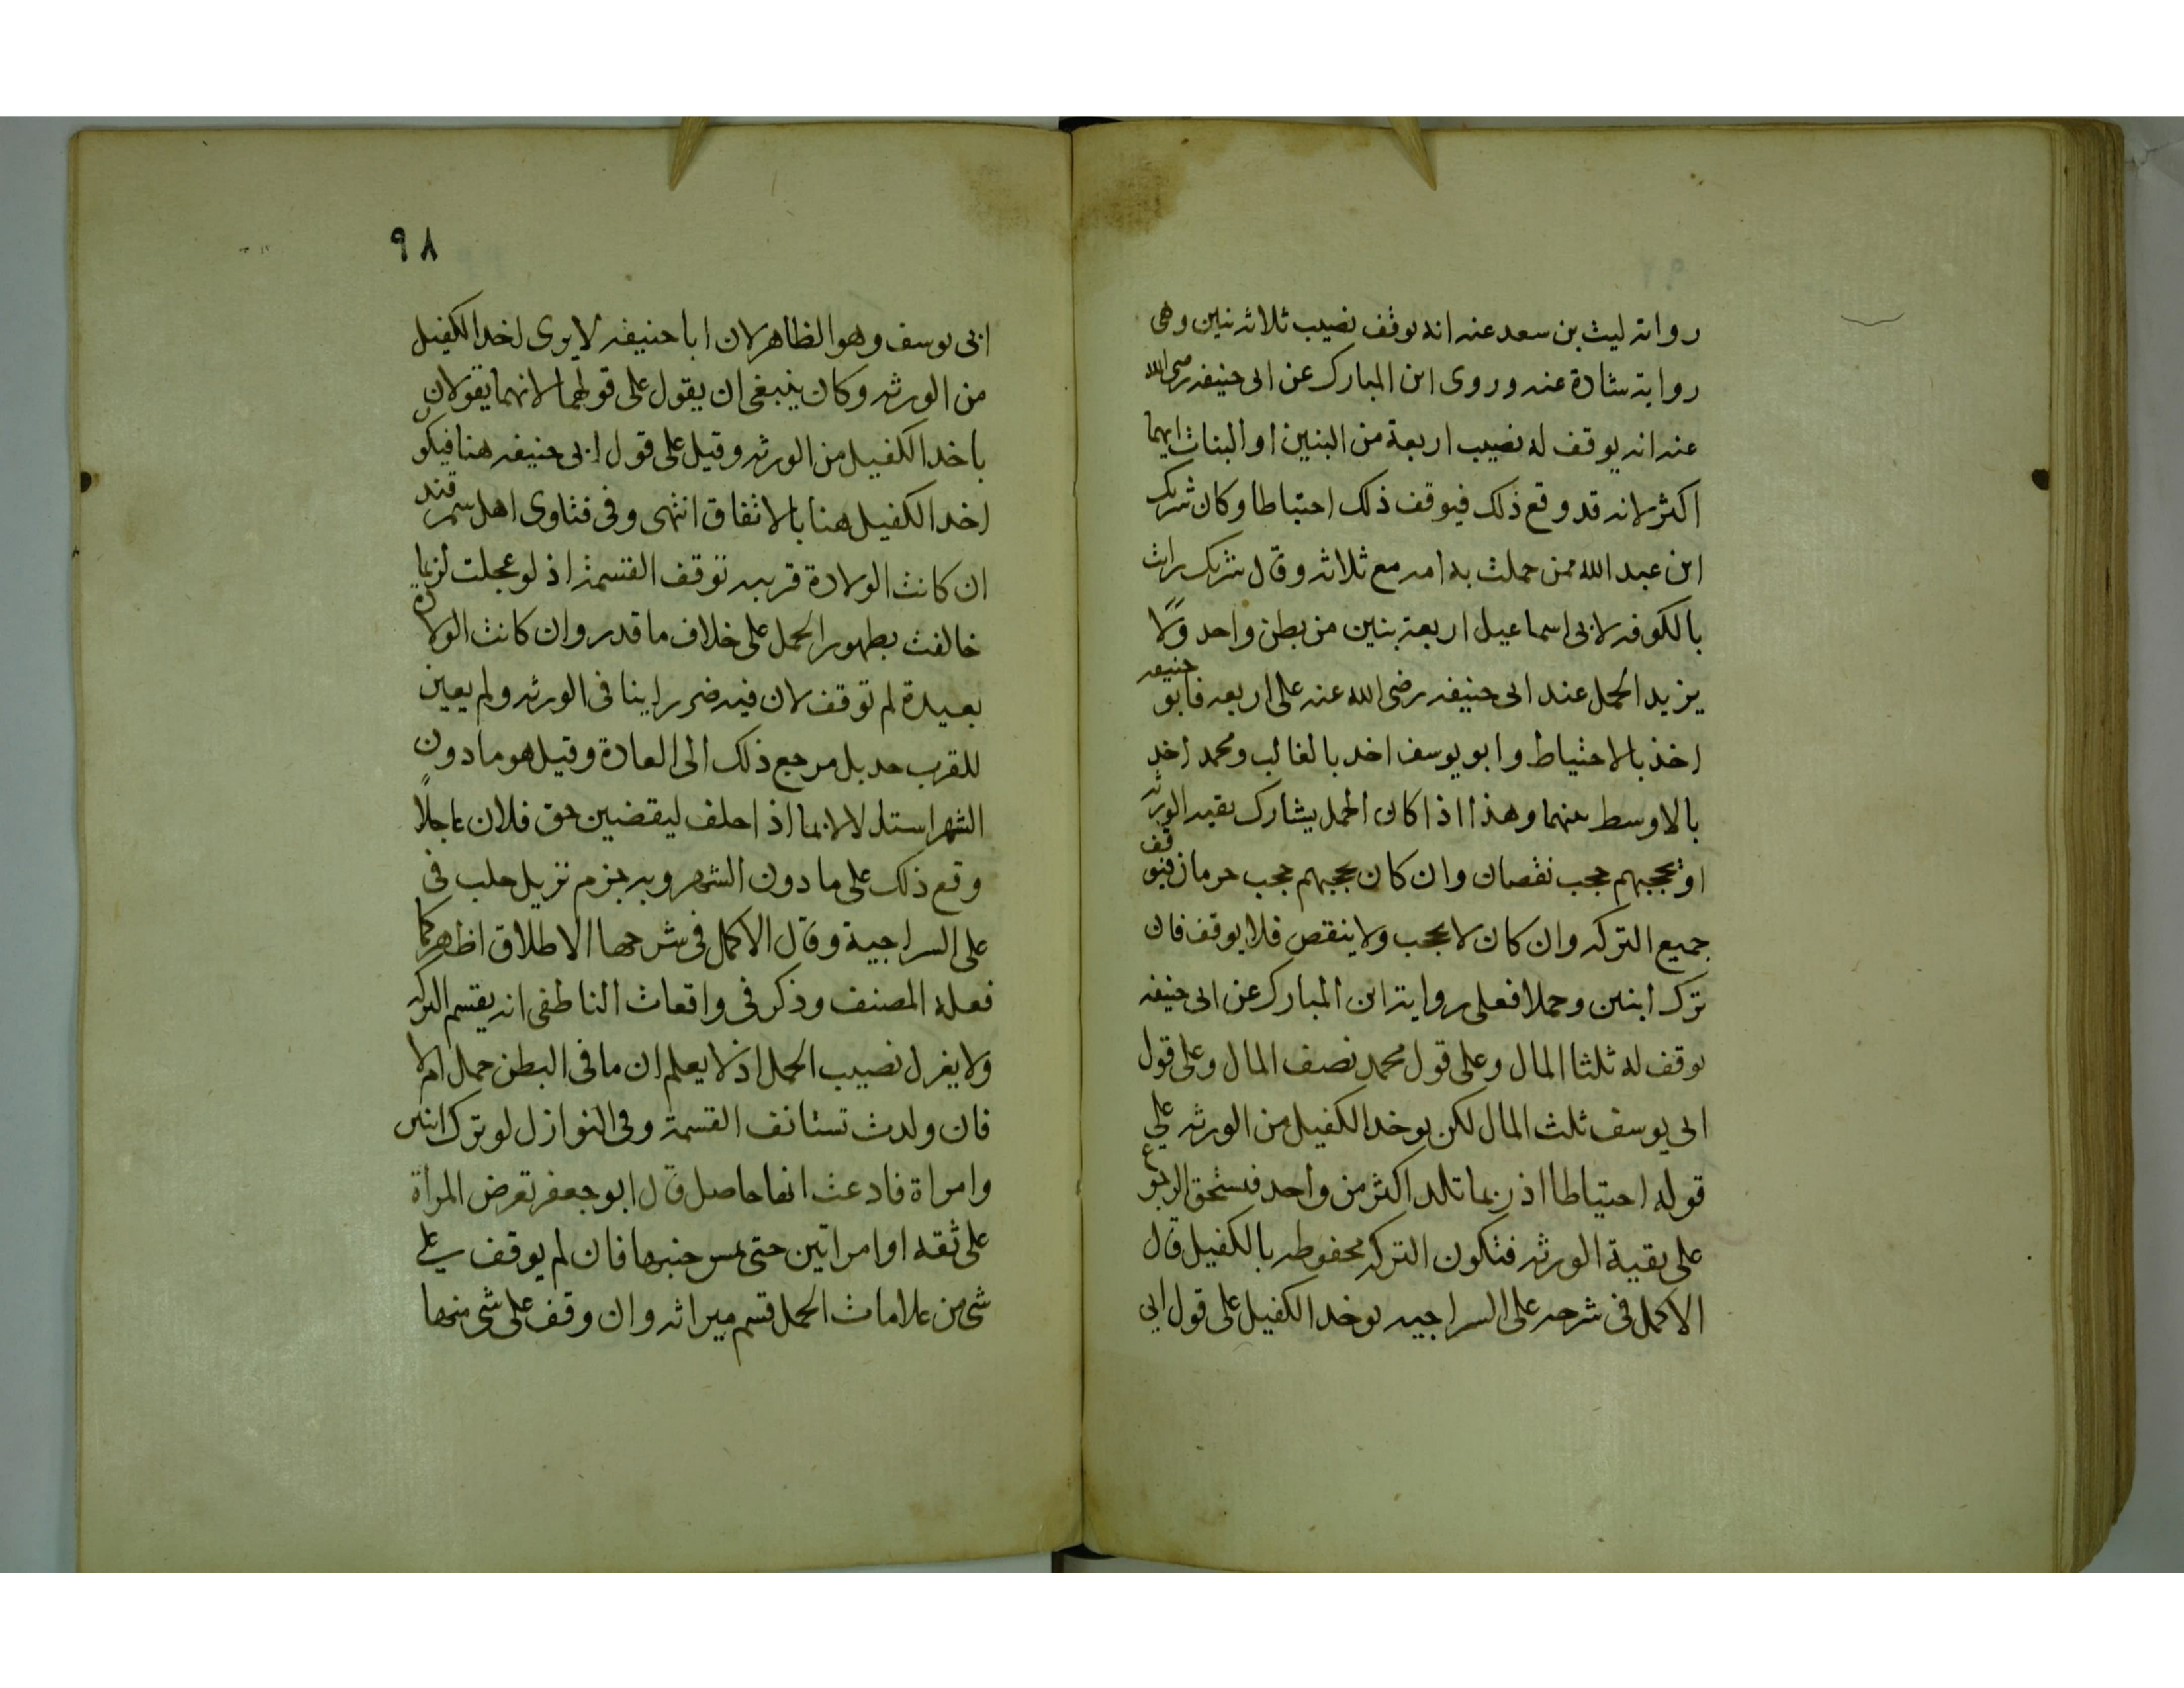 رواية ليث بن سعد عنه انه يوقف نصيب ثلاثة بنين وهى
رواية شادة عنه وروى ابن المبارك عن ابى حنيفه رضى الله
عنه انه يوقف له نصيب اربعة من البنين او البنات ايهما
اكثر لانه قد وقع ذلك فيوقف ذلك احتياطا وكان شريك
ابن عبد الله ممن حملت به امه مع ثلاثه وقال شريك رايت
بالكوفه لابى اسماعيل اربعة بنين من بطن واحد ولا
يزيد الحمل عند ابى حنيفه رضى الله عنه على اربعه فابو حنيفه
اخذ بالاحتياط وابو يوسف اخد بالغالب ومحمد اخد
بالاوسط منهما وهذا اذا كان الحمل يشارك بقيه الورثه
او يحجبهم حجب نقصان وان كان يحجبهم حجب حرمان فيوقف
جميع التركه وان كان لا يحجب ولا ينقص فلا يوقف فان
ترك ابنين وحملا فعلى رواية ابن المبارك عن ابى حنيفه
يوقف له ثلثا المال وعلى قول محمد نصف المال وعلى قول
ابى يوسف ثلث المال لكن يوخد الكفيل من الورثه على
قوله احتياطا اذ ربما تلد اكثر من واحد فيستحق الرجوع
على بقية الورثه فتكون التركه محفوظه بالكفيل قال
الاكمل فى شرحه على السراجيه يوخد الكفيل على قول ابى
٩٨
ابى يوسف وهو الظاهر لان ابا حنيفه لا يرى اخد الكفيل
من الورثه وكان ينبغى ان يقول على قولهما لانهما يقولان
باخد الكفيل من الورثه وقيل على قول ابى حنيفه هنا فيكون
اخد الكفيل هنا بالاتفاق انتهى وفى فتاوى اهل سمرقند
ان كانت الولادة قريبه توقف القسمة اذ لو عجلت لربما
خالفت بظهور الحمل على خلاف ما قدر وان كانت الولادة
بعيدة لم توقف لان فيه ضررا بينا فى الورثه ولم يعين
للقرب حد بل مرجع ذلك الى العادة وقيل هو ما دون
الشهر استدلالا بما اذا حلف ليقضين حق فلان عاجلًا
وقع ذلك على ما دون الشهر وبه جزم نزيل حلب فى
على السراجية وقال الاكمل فى شرحها الاطلاق اظهر كما
فعله المصنف وذكر فى واقعات الناطفى انه يقسم التركه
ولا يعزل نصيب الحمل اذ لا يعلم ان ما فى البطن حمل ام لا
فان ولدت تستانف القسمة وفى النوازل لو ترك ابنين
وامراة فادعت انها حاصل قال ابو جعفر تعرض المراة
على ثقه او امراتين حتى يمس جنبها فان لم يوقف على
شى من علامات الحمل قسم ميراثه وان وقف على شى منها